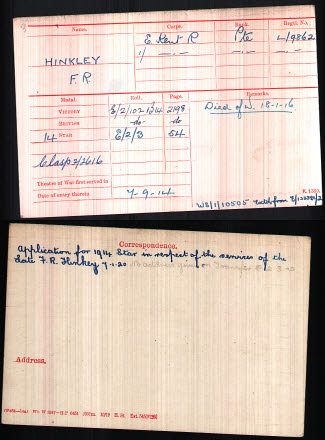 Name. Corps. Rank. Regtl. No.
HINKLEY E. Kent R Pte L/9862
F. R " — — " —
Medal. Roll. Page. Remarks.
VICTORY E/2/102 B14 2198 Died of W. 18-1-16.
BRITISH -do- -do-
14 STAR E/2/3 54
Clasp 2/2616
Theatre of War first served in
Date of entry therein 7-9-14
K. 1380.
W5/1/10505
Correspondence.
Application for 1914 Star in respect of the services of the
late F. R. Hinkley 7-1-20
Address.